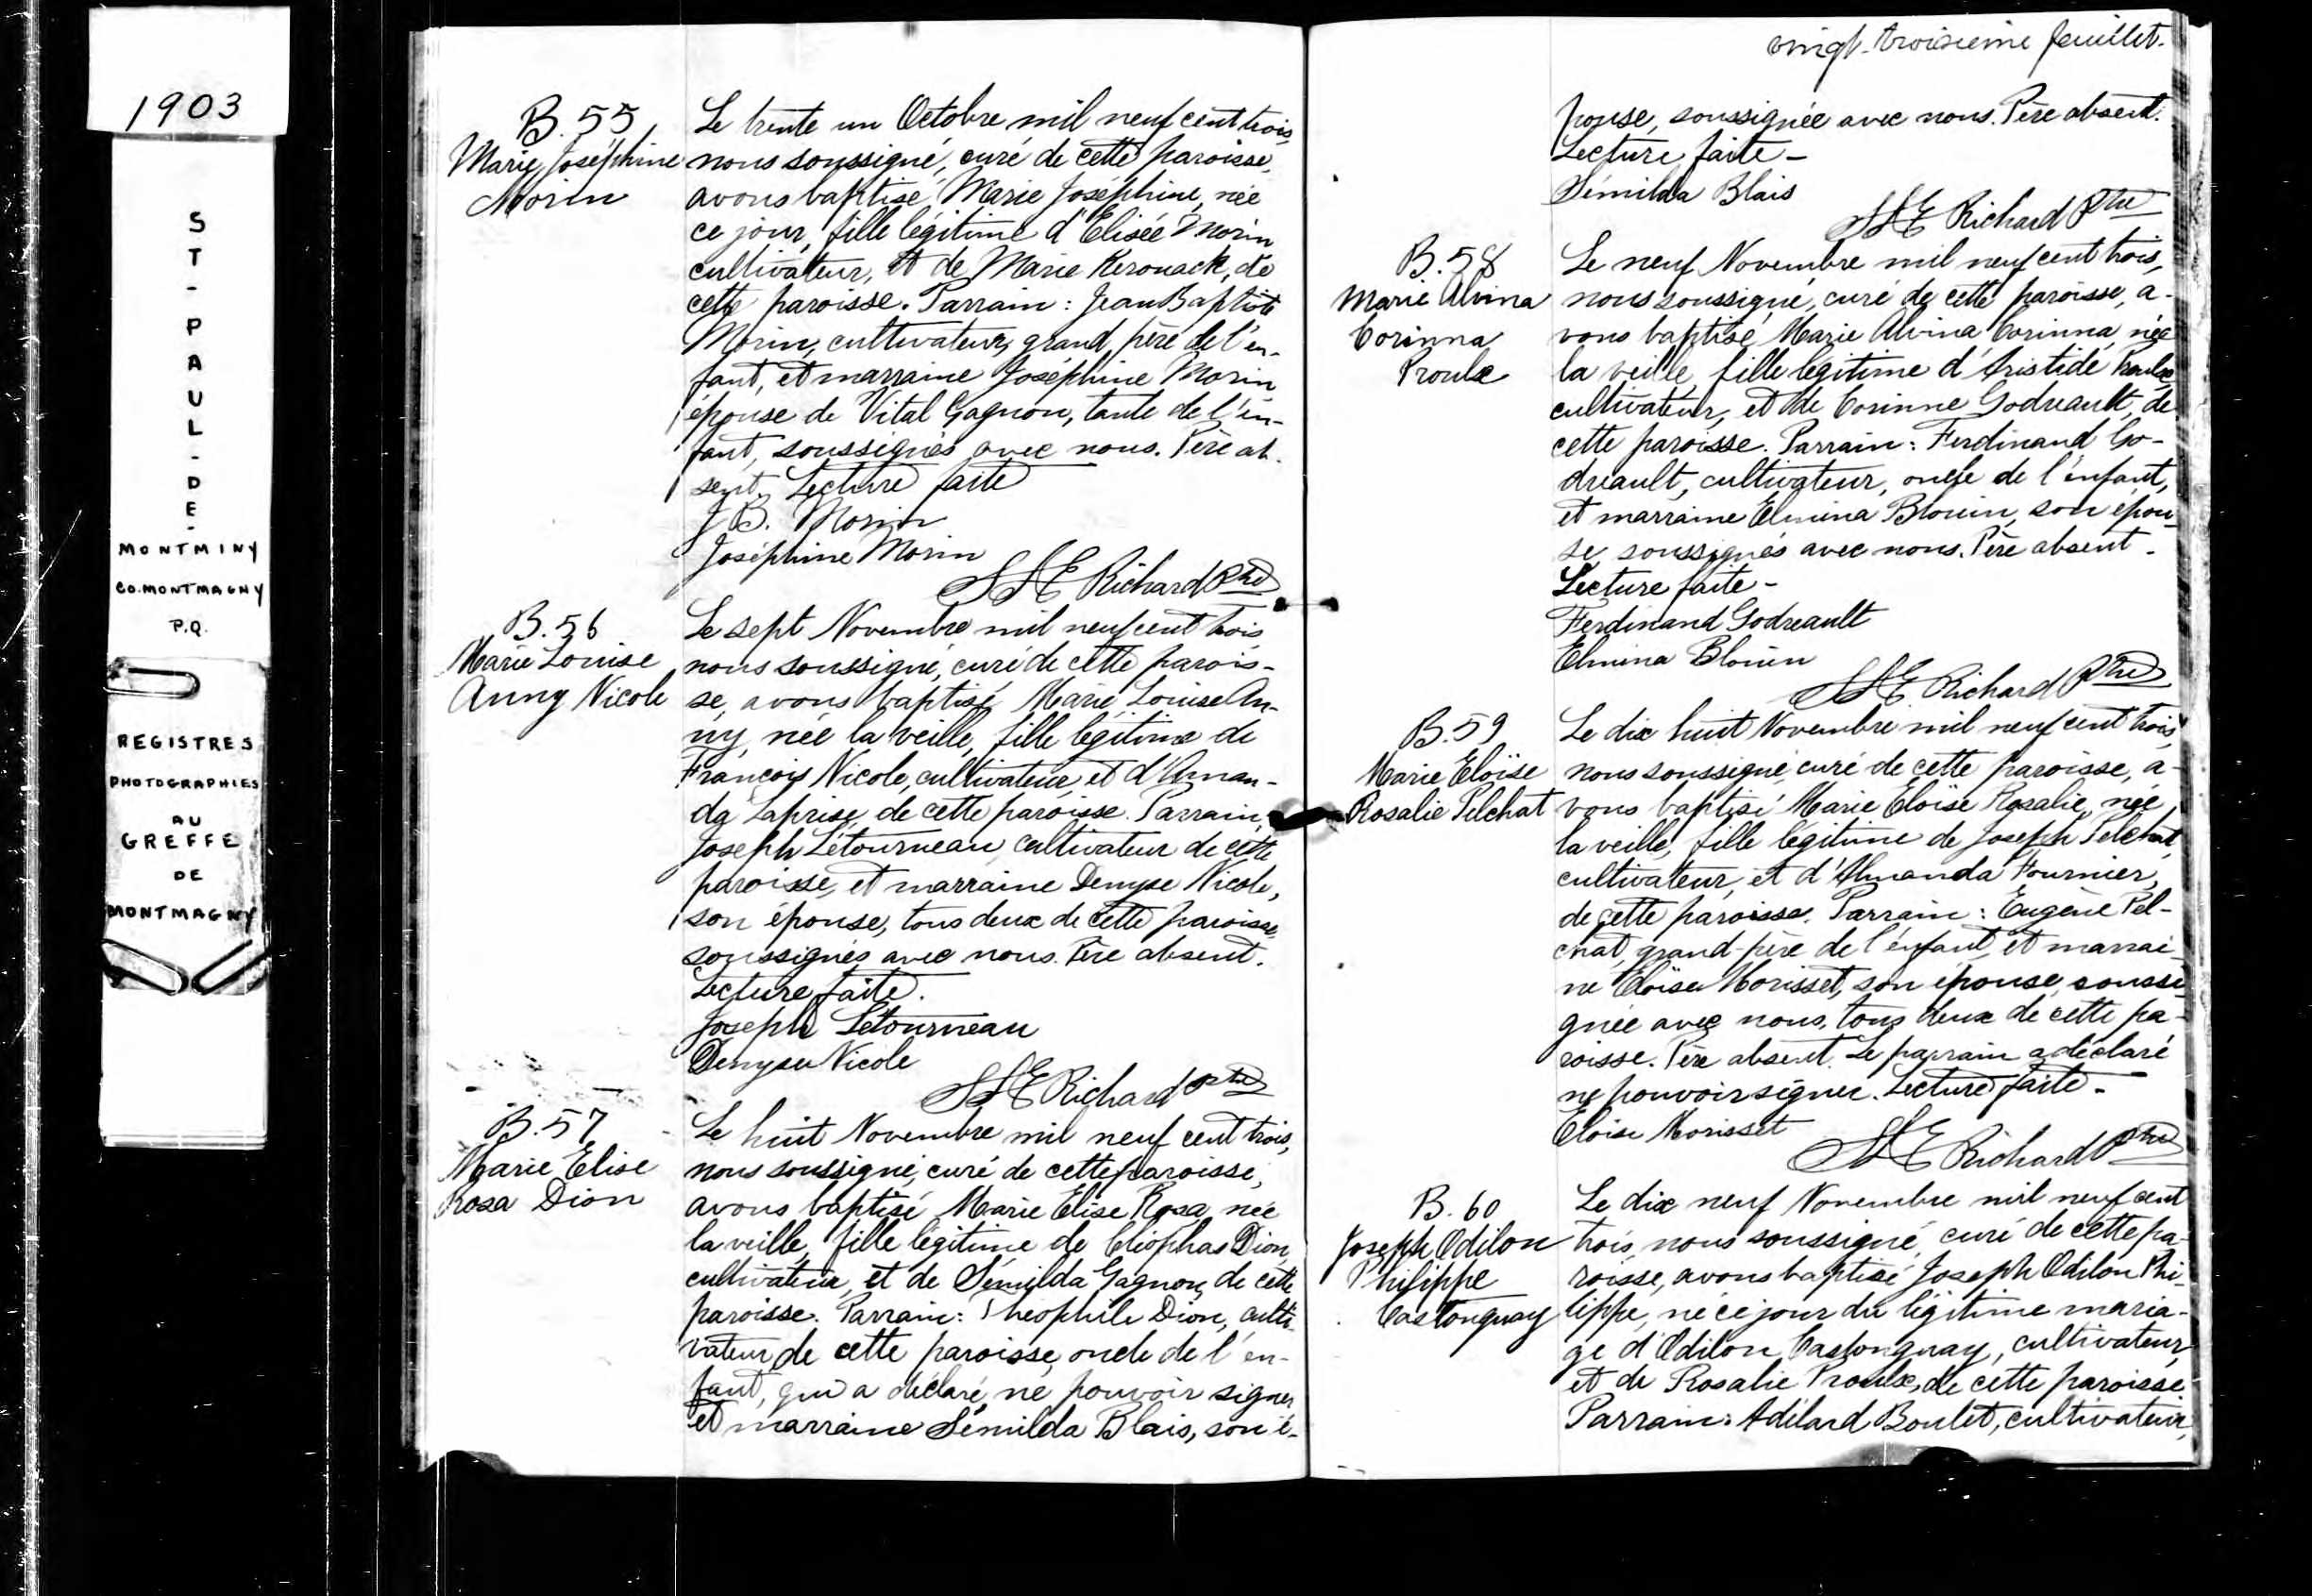 1903
ST-PAUL-DE-
MONTMINY
CO. MONTMAGNY
P.Q.
REGISTRES
PHOTOGRAPHIES
AU
GREFFE
DE
MONTMAGNY
B. 55
Marie Joséphine
Morin
Le trente un Octobre mil neuf cent trois,
nous soussigné, curé de cette paroisse,
avons baptisé Marie Joséphine, née
ce jour, fille légitime d'Elisée Morin
cultivateur, et de Marie Kerouack, de
cette paroisse. Parrain: Jean Baptiste
Morin, cultivateur, grand père de l'en-
fant, et marraine Joséphine Morin
épouse de Vital Gagnon, tante de l'en-
fant, soussignés avec nous. Père ab-
sent. Lecture faite
J B. Morin
Joséphine Morin
Richard Ptre
B. 56
Marie Louise
Anny Nicole
Le sept Novembre mil neuf cent trois
nous soussigné, curé de cette parois-
se, avons baptisé Marie Louise An-
ny, née la veille, fille légitime de
François Nicole, cultivateur, et d'Aman-
da Laprise, de cette paroisse. Parrain,
Joseph Létourneau, cultivateur de cette
paroisse, et marraine Demyse Nicole,
son épouse, tous deux de cette paroisse,
soussignés avec nous. Père absent.
Lecture faite.
Joseph Létourneau
Demyse Nicole
Richard ptre
B. 57
Marie Elise
Rosa Dion
Le huit Novembre mil neuf cent trois,
nous soussigné, curé de cette paroisse,
avons baptisé Marie Elise Rosa, née
la veille, fille légitime de Cléophas Dion
cultivateur, et de Sémilda Gagnon, de cette
paroisse. Parrain: Théophile Dion, culti-
vateur de cette paroisse, oncle de l'en-
fant, qui a déclaré ne pouvoir signer
et marraine Sémilda Blais, son é-
vingt-troisième feuillet.
pouse, soussignée avec nous. Père absent.
Lecture faite -
Sémilda Blais
Richard Ptre
B. 58
Marie Alvina
Corinna
Proulx
Le neuf Novembre mil neuf cent trois,
nous soussigné, curé de cette paroisse, a-
vons baptisé Marie Alvina Corinna, née
la veille, fille légitime d'Aristide Proulx
cultivateur, et de Corinne Godreault, de
cette paroisse. Parrain: Ferdinand Go-
dreault, cultivateur, oncle de l'enfant,
et marraine Elmina Blouin, son épou-
se, soussignés avec nous. Père absent -
Lecture faite -
Ferdinand Godreault
Elmina Blouin
Richard Ptre
B. 59
Marie Eloïse
Rosalie Pelchat
Le dix huit Novembre mil neuf cent trois,
nous soussigné, curé de cette paroisse, a-
vons baptisé Marie Eloïse Rosalie, née
la veille, fille légitime de Joseph Pelchat,
cultivateur, et d'Almanda Fournier,
de cette paroisse. Parrain: Eugène Pel-
chat, grand-père de l'enfant, et marrai-
ne Eloïse Morisset, son épouse, soussi-
gnée avec nous, tous deux de cette pa-
roisse. Père absent. Le parrain a déclaré
ne pouvoir signer. Lecture faite -
Eloïse Morisset
Richard Ptre
B. 60
Joseph Odilon
Philippe
Castonguay
Le dix neuf Novembre mil neuf cent
trois, nous soussigné, curé de cette pa-
roisse, avons baptisé Joseph Odilon Phi-
lippe, né ce jour du légitime maria-
ge d'Odilon Castonguay, cultivateur,
et de Rosalie Proulx, de cette paroisse.
Parrain: Adélard Boulet, cultivateur,